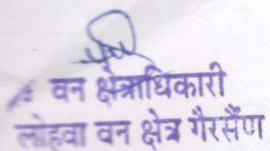 वन क्षेत्राधिकारी
लोहवा वन क्षेत्र गैरसैंण